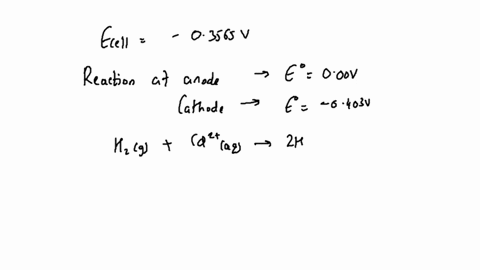 Ecell = - 0.3565 V
Reaction at anode → E° = 0.00V
Cathode → E° = -0.403V
H₂(g) + Cd²⁺(aq) → 2H